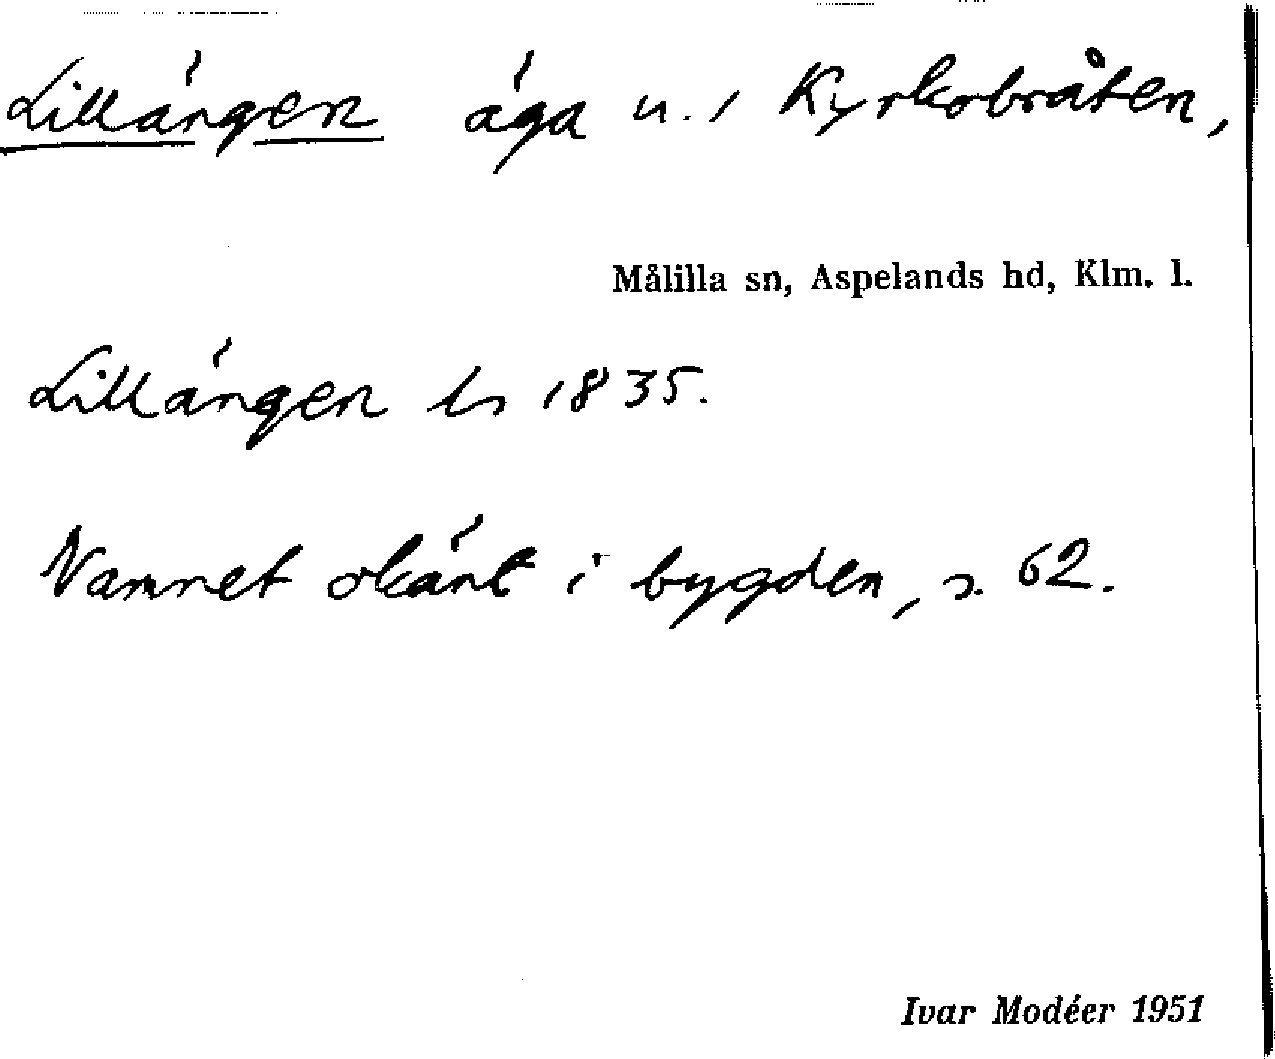 Lillängen äga u. 1 Kyrkobråten,
Målilla sn, Aspelands hd, Klm. l.
Lillängen ls 1835.
Namnet okänt i bygden, s. 62.
Ivar Modéer 1951